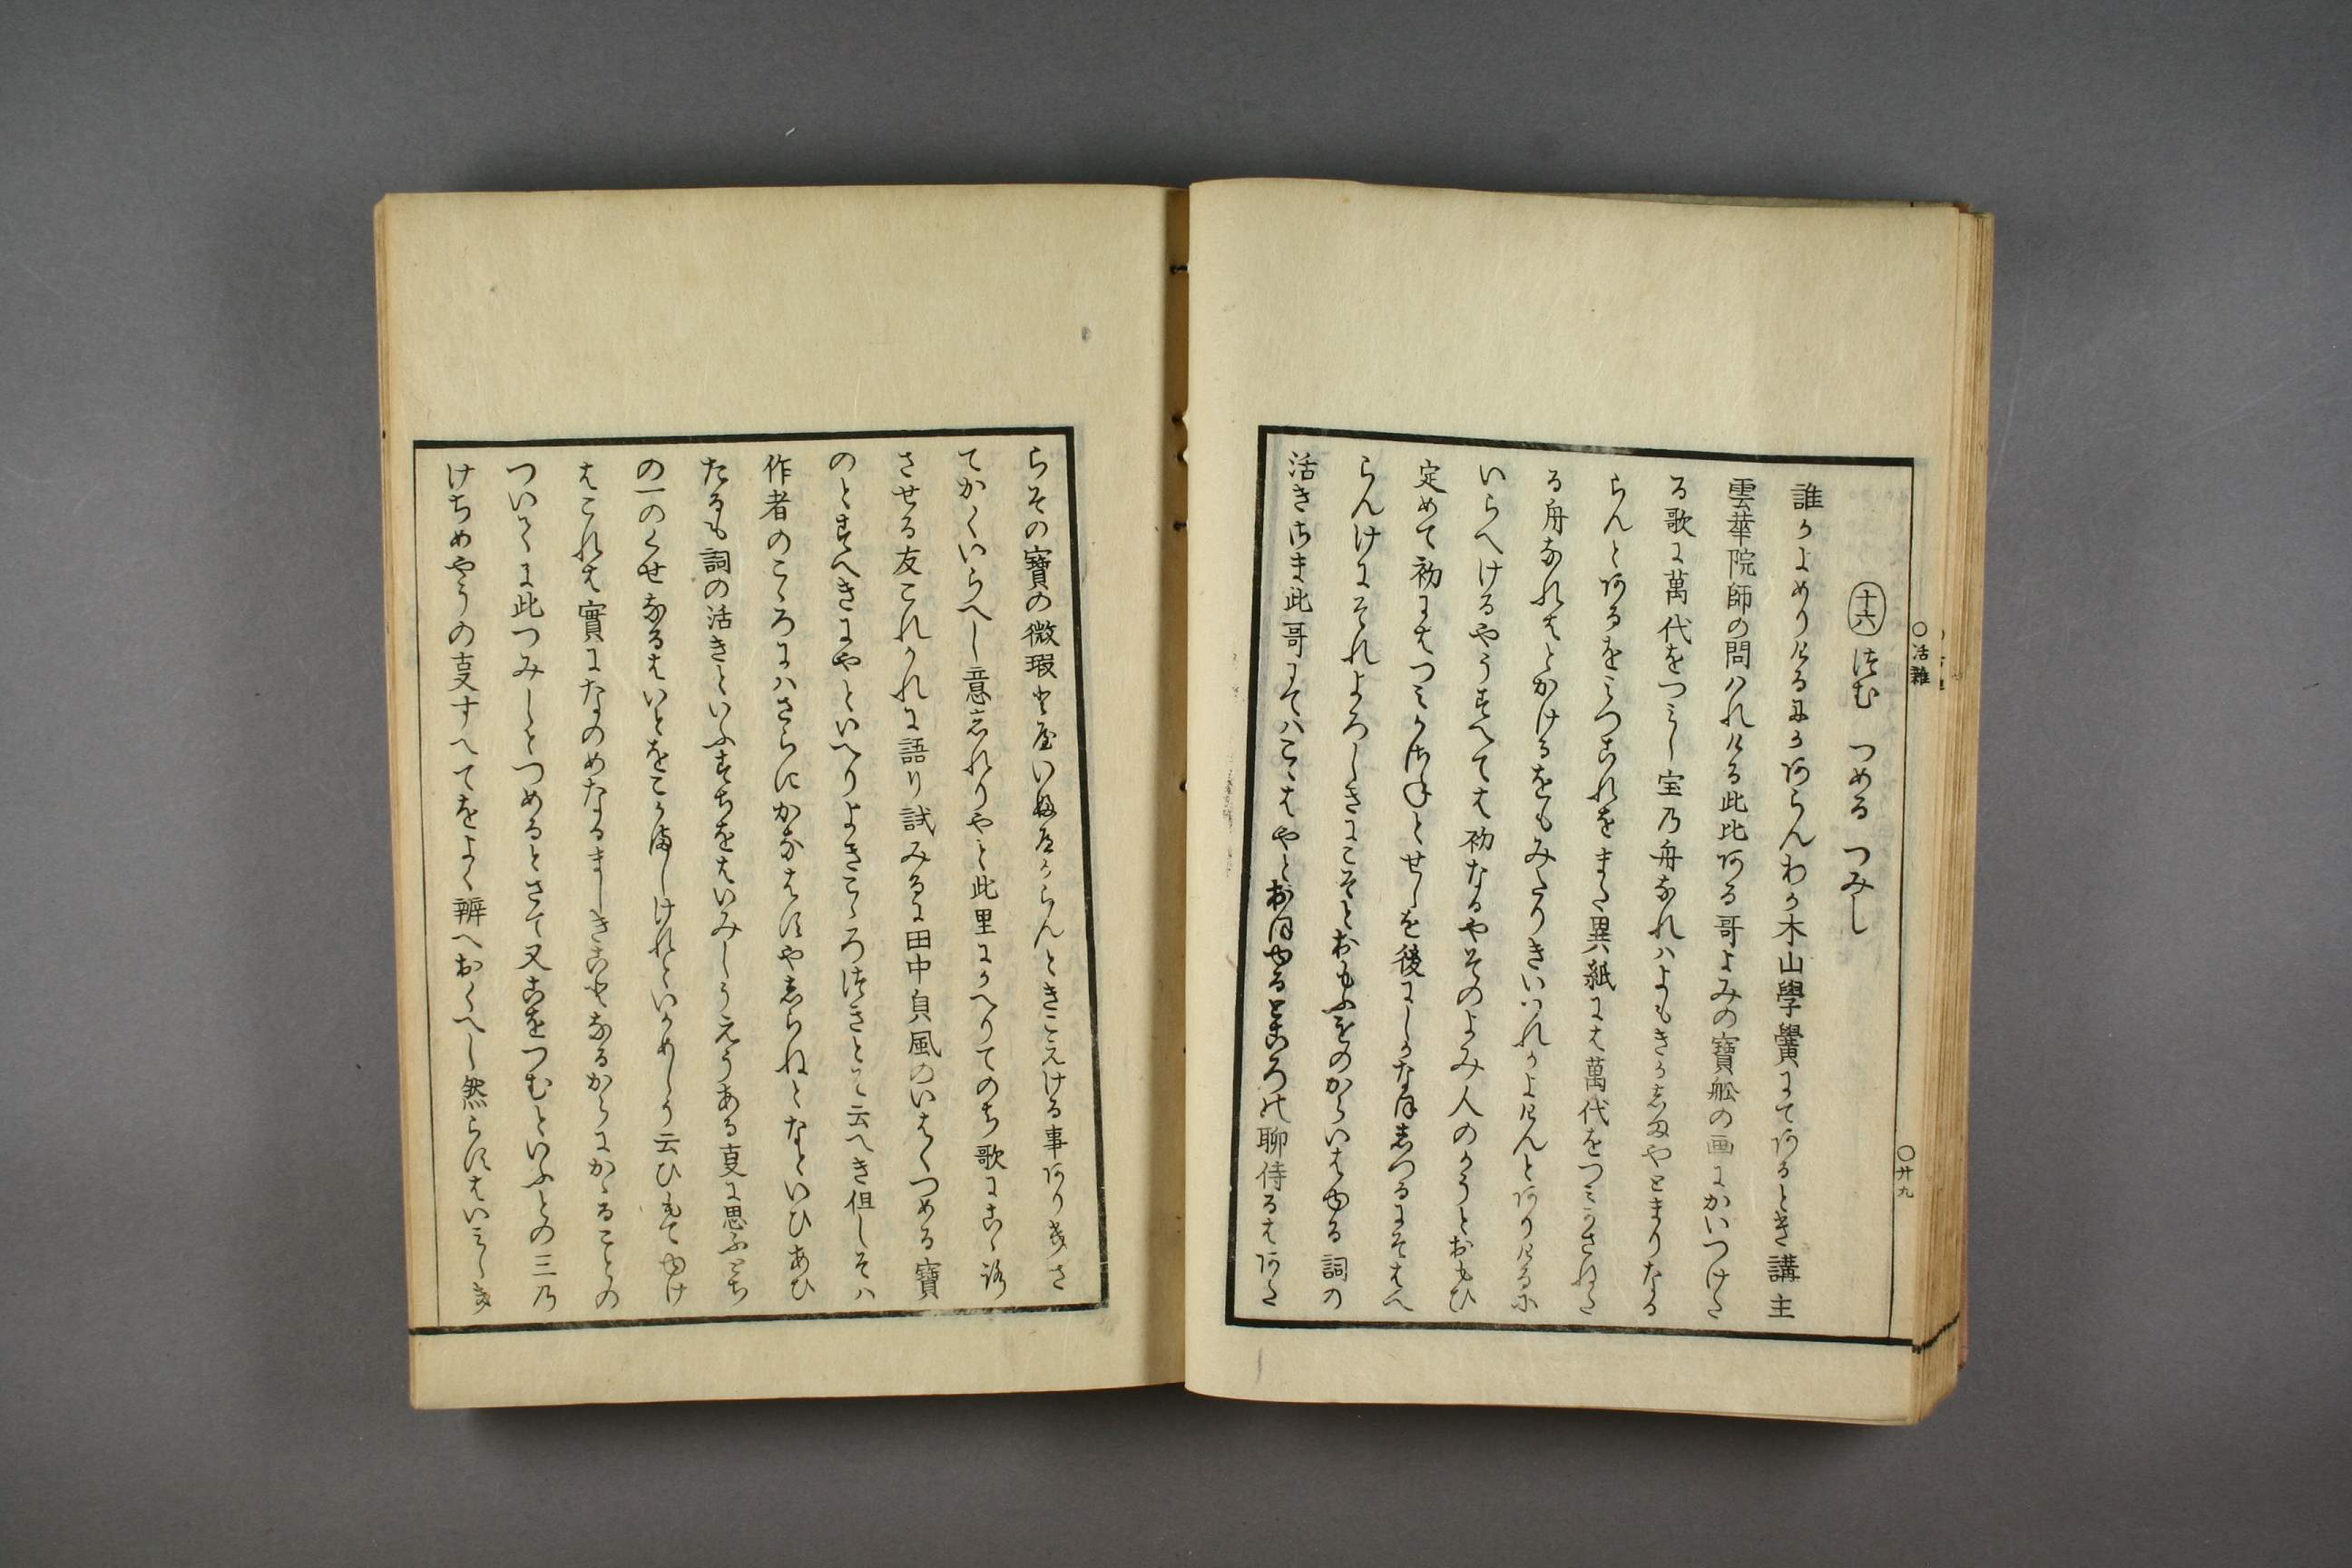 十六 つむ つめる つみし
誰かよめりけるにかあらんわか木山學黌にてあるとき講主
雲華院師の問はれける此比ある哥よみの寶舩の画にかいつけた
る歌に萬代をつみし宝乃舟なれはよもきかしまやとまりなる
らんとあるをみつこれをまた異紙には萬代をつみかさねた
る舟なれはとかけるをもみたりきいつれかよけんとありけるに
いらへけるやうすへては初なるやそのよみ人のかうとおもひ
定めて初にはつみかさねとせしを後にしかなほしつるにそはへ
らんけにそれよろしきにこそとおもふをのからいはゆる詞の
活きさま此哥にてはこゝはやとおほゆるところの聊侍るはあた
らその寶の微瑕とやいふへからんときこえける事ありきさ
てかくいらへし意しれりやと此里にかへりてのち歌にこゝろ
させる友これかれに語り試みるに田中貞風のいはくつめる寶
のとすへきにやといへりよきこゝろつきとそ云へき但しそハ
作者のこゝろにハさらにかなはすやしらねとなといひあひ
たるも詞の活きといふすちをはいみしうえうある叓に思ふとち
の一のくせなるはいとをこかましけれといかめしう云ひもてゆけ
はこれは實になのめなるましきことなるからにかゝることの
ついてに此つみしとつめるとさて又こをつむといふとの三乃
けちめやうの叓すへてをよく辨へおくへし然らすはいみしき
○活雜
○廿九